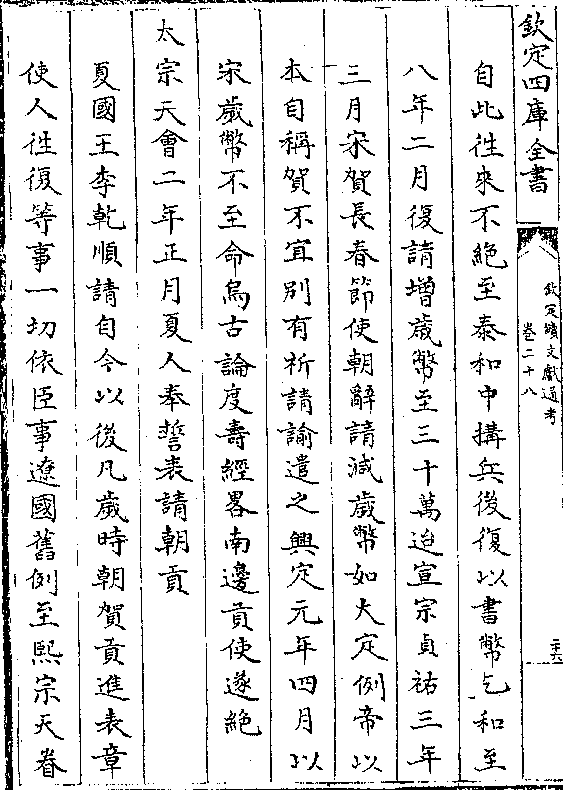 欽定四庫全書
欽定續文獻通考
卷二十八
二十六
自此徃來不絶至泰和中搆兵後復以書幣乞和至
八年二月復請增歳幣至三十萬迨宣宗貞祐三年
三月宋賀長春節使朝辭請減歳幣如大定例帝以
本自稱賀不宜別有祈請諭遣之興定元年四月以
宋歳幣不至命烏古論度壽經畧南邊貢使遂絶
太宗天會二年正月夏人奉誓表請朝貢
夏國王李乾順請自今以後凡歳時朝賀貢進表章
使人徃復等事一切依臣事遼國舊例至熙宗天眷